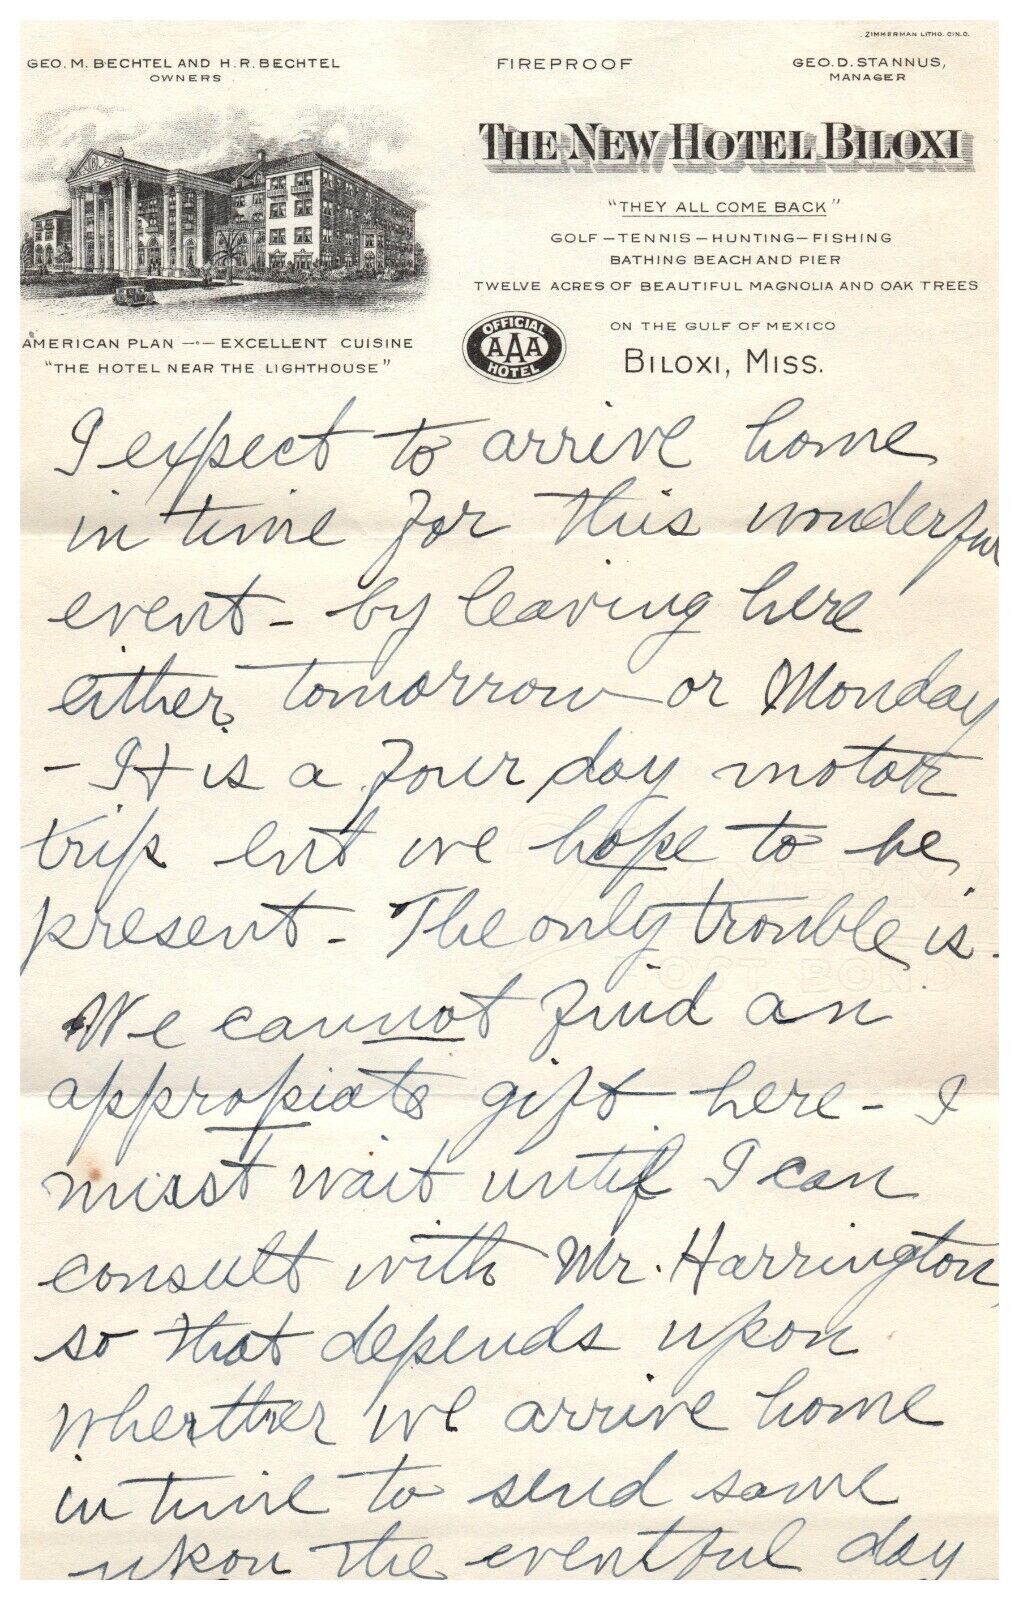 ZIMMERMAN LITHO. CIN.O.
GEO. M. BECHTEL AND H. R. BECHTEL
OWNERS
FIREPROOF
GEO. D. STANNUS,
MANAGER
THE NEW HOTEL BILOXI
"THEY ALL COME BACK"
GOLF – TENNIS – HUNTING – FISHING
BATHING BEACH AND PIER
TWELVE ACRES OF BEAUTIFUL MAGNOLIA AND OAK TREES
AMERICAN PLAN –·– EXCELLENT CUISINE
"THE HOTEL NEAR THE LIGHTHOUSE"
OFFICIAL
AAA
HOTEL
ON THE GULF OF MEXICO
BILOXI, MISS.
I expect to arrive home
in time for this wonderful
event – by leaving here
either tomorrow or Monday
– It is a four day motor
trip but we hope to be
present – The only trouble is –
We cannot find an
appropiate gift here – I
must wait until I can
consult with Mr. Harrington,
so that depends upon
wherther we arrive home
in time to send same
upon the eventful day